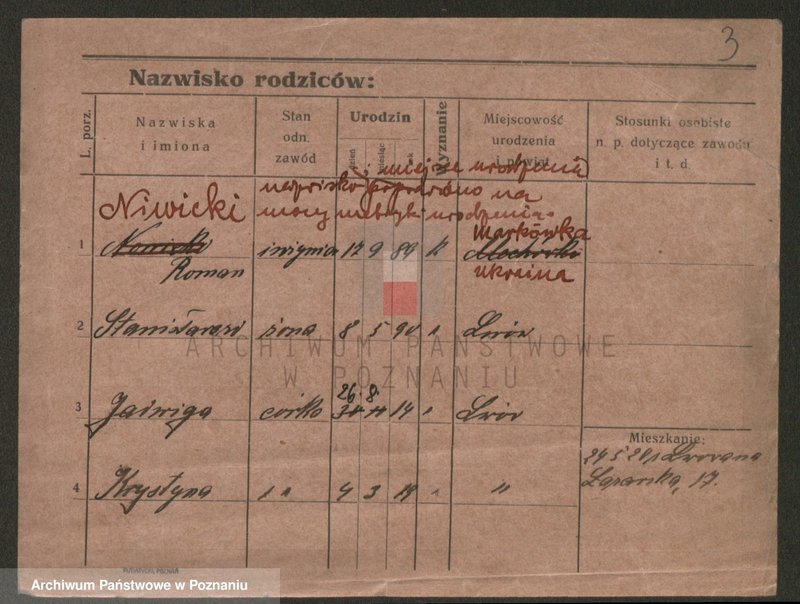 3
Nazwisko rodziców:
L. porz.
Nazwiska
i imiona
Stan
odn.
zawód
Urodzin
dzień
miesiąc
rok
Wyznanie
Miejscowość
urodzenia
i powiat
Stosunki osobiste
n. p. dotyczące zawodu
i t. d.
i miejsce urodzenia
nazwisko poprawiono na
mocy metryki urodzenia.
Niwicki
Markówka
1 inżynier 17 9 89
Roman
Ukraina
2 żona 8 5 90 Lwów
ARCHIWUM PAŃSTWOWE
W POZNANIU
26 8
3 Jadwiga córka 14 Lwów
Mieszkanie:
24 5 21
17.
4 Krystyna " " 4 3 19 "
Archiwum Państwowe w Poznaniu